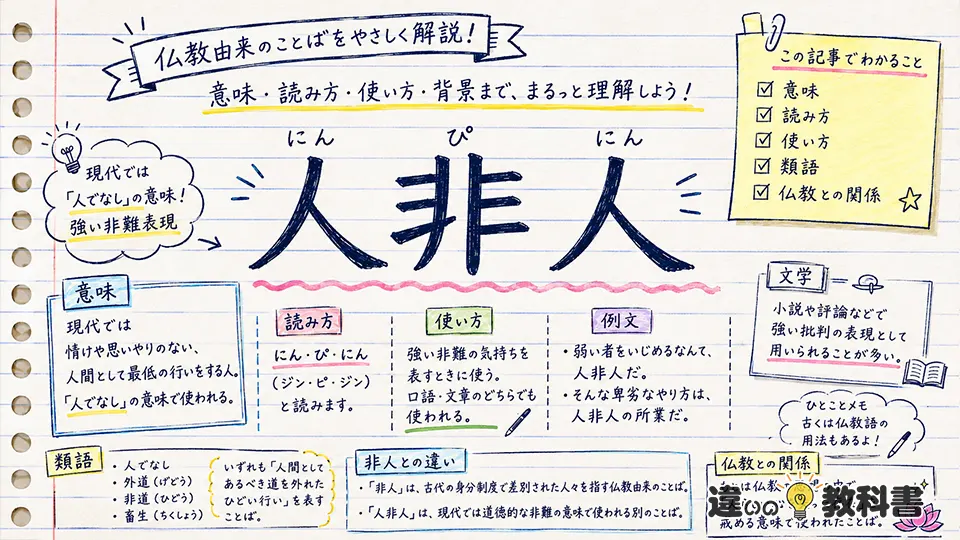 仏教由来のことばをやさしく解説！
意味・読み方・使い方・背景まで、まるっと理解しよう！
この記事でわかること
意味
読み方
使い方
類語
仏教との関係
現代では
「人でなし」の意味！
強い非難表現
にん ぴ にん
人非人
意味
現代では
情けや思いやりのない、
人間として最低の行いをする人。
「人でなし」の意味で使われる。
読み方
にん・ぴ・にん
（ジン・ピ・ジン）
と読みます。
使い方
強い非難の気持ちを
表すときに使う。
口語・文章のどちらでも
使われる。
例文
・弱い者をいじめるなんて、
人非人だ。
・そんな卑劣なやり方は、
人非人の所業だ。
文学
小説や評論などで
強い批判の表現として
用いられることが多い。
ひとことメモ
古くは仏教語の
用法もあるよ！
類語
・人でなし
・外道（げどう）
・非道（ひどう）
・畜生（ちくしょう）
いずれも「人間として
あるべき道を外れた
ひどい行い」を表す
ことば。
非人との違い
・「非人」は、古代の身分制度で差別された人々を指す仏教由来のことば。
・「人非人」は、現代では道徳的な非難の意味で使われる別のことば。
仏教との関係
は仏教で
戒める意味で使われたことば。
違いの教科書